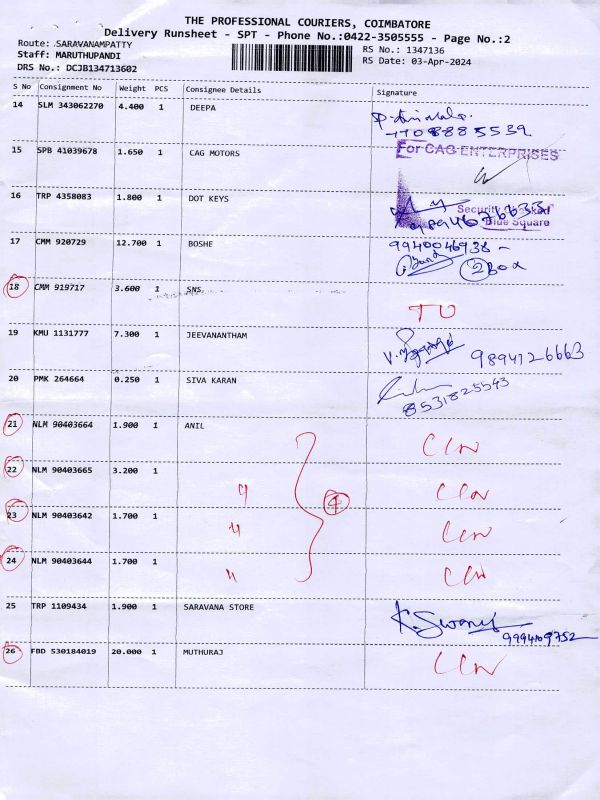 THE PROFESSIONAL COURIERS, COIMBATORE
Delivery Runsheet - SPT - Phone No.:0422-3505555 - Page No.:2
Route: SARAVANAMPATTY
Staff: MARUTHUPANDI
DRS No.: DCJB134713602
RS No.: 1347136
RS Date: 03-Apr-2024
S No Consignment No Weight PCS Consignee Details Signature
14 SLM 343062270 4.400 1 DEEPA
15 SPB 41039678 1.650 1 CAG MOTORS
For CAG ENTERPRISES
16 TRP 4358083 1.800 1 DOT KEYS
Security Checked
Blue Square
17 CMM 920729 12.700 1 BOSHE 9940046938 -
2 Box
18 CMM 919717 3.600 1 SNS
19 KMU 1131777 7.300 1 JEEVANANTHAM 9894126663
20 PMK 264664 0.250 1 SIVA KARAN
8531825543
21 NLM 90403664 1.900 1 ANIL
22 NLM 90403665 3.200 1 "
4
23 NLM 90403642 1.700 1 "
24 NLM 90403644 1.700 1 "
25 TRP 1109434 1.900 1 SARAVANA STORE
9994109752
26 FBD 530184019 20.000 1 MUTHURAJ